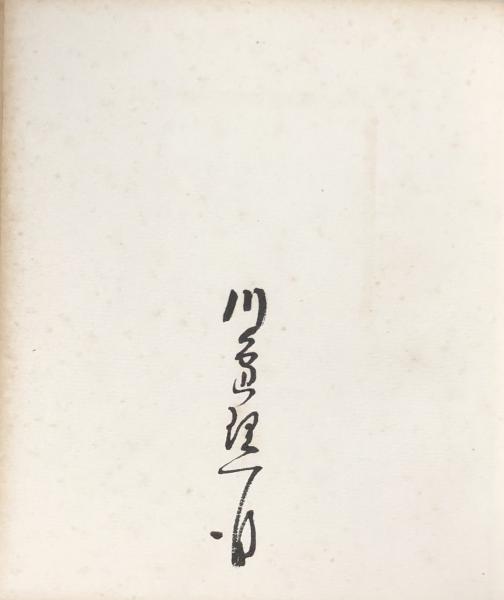 川島理一郎